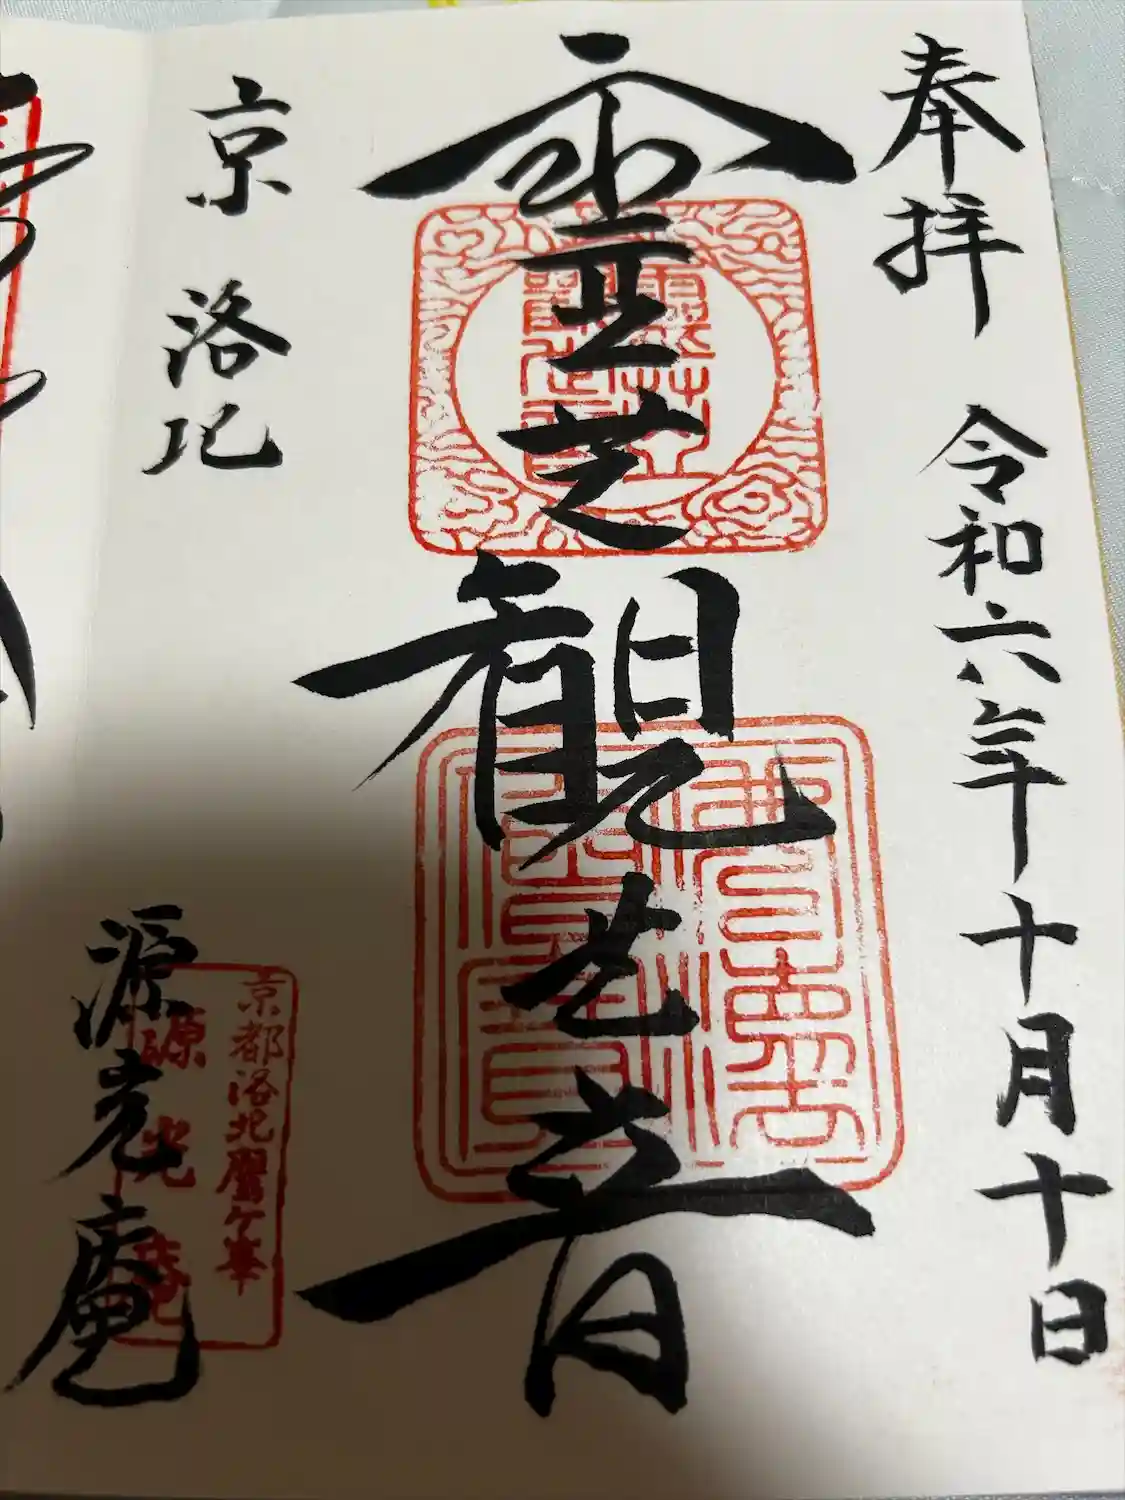 奉拝 令和六年十月十日
霊芝観世音
京 洛北
源光庵
京都洛北鷹ケ峯
源光庵